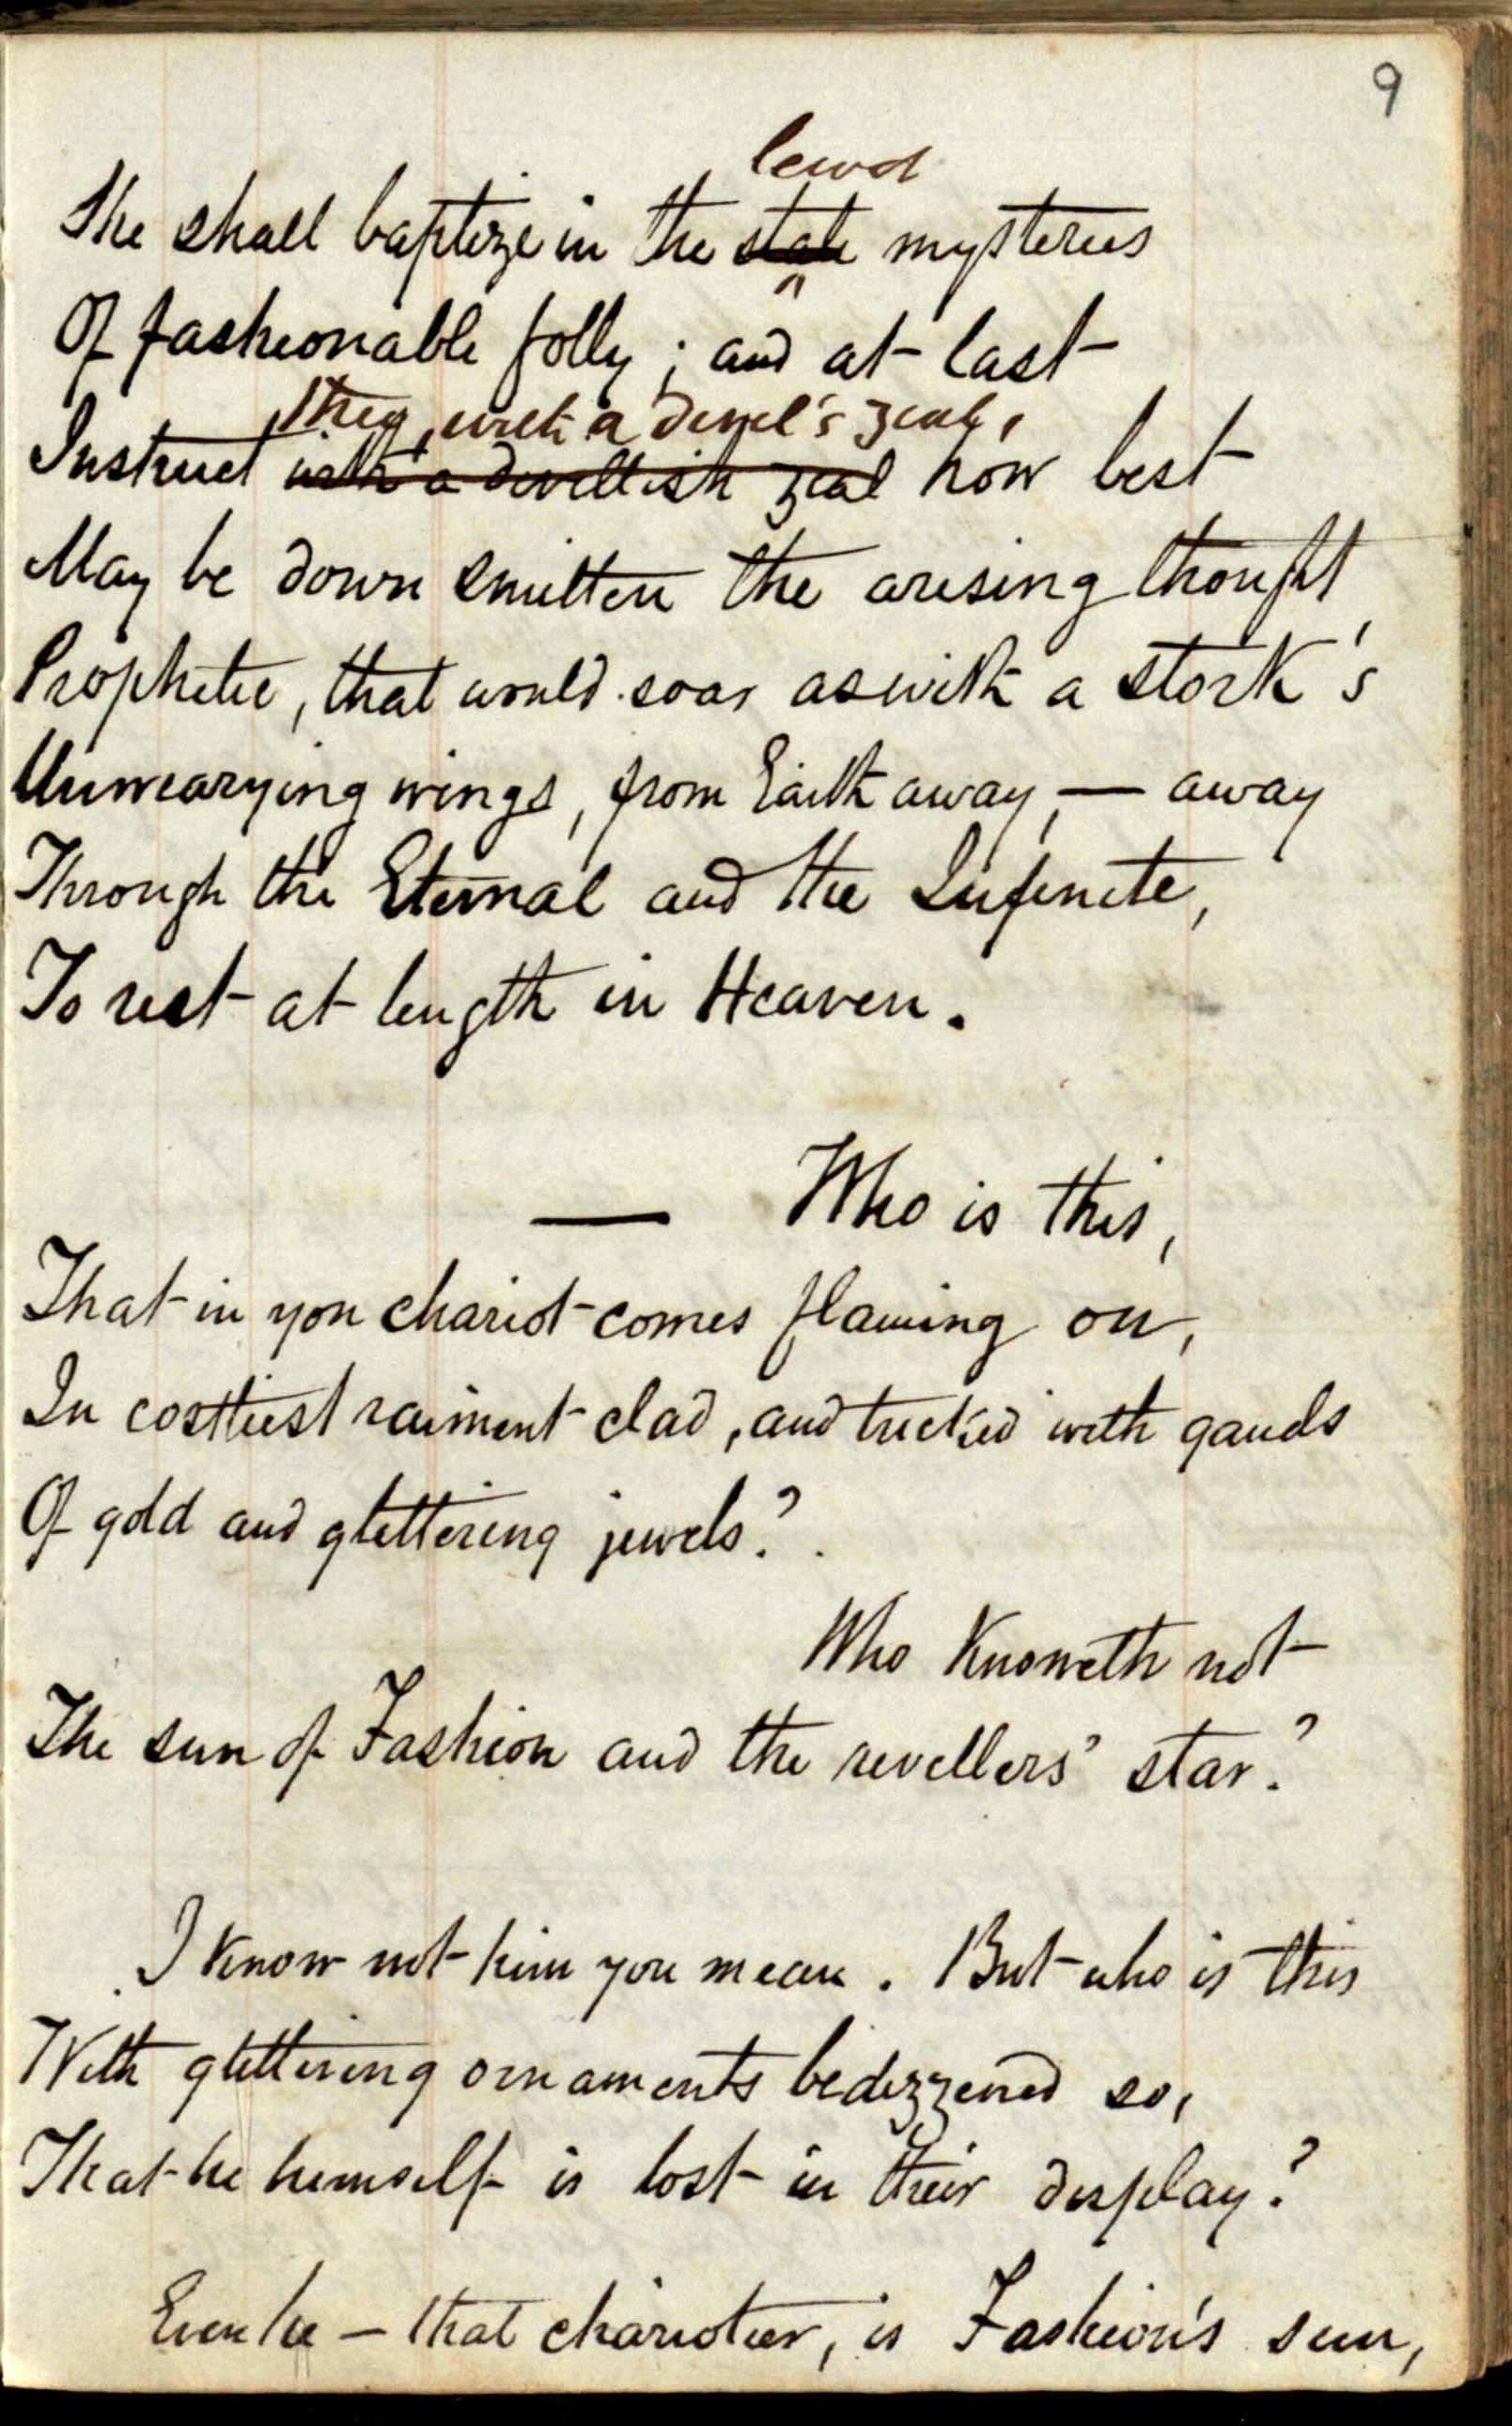 9
lewd
She shall baptize in the stale mysteries
Of fashionable folly; and at last
thee, with a devil's zeal,
Instruct with a devillish zeal how best
May be down smitten the arising thought,
Prophetic, that would soar as with a stork's
Unwearying wings, from Earth away, — away
Through the Eternal and the Infinite,
To rest at length in Heaven.
— Who is this,
That in yon chariot comes flaming on,
In costliest raiment clad, and tricked with gauds
Of gold and glittering jewels?
Who knoweth not
The sun of Fashion and the revellers' star?
I know not him you mean. But who is this
With glittering ornaments bedizzened so,
That he himself is lost in their display?
Even he — that charioteer, is Fashion's sun,